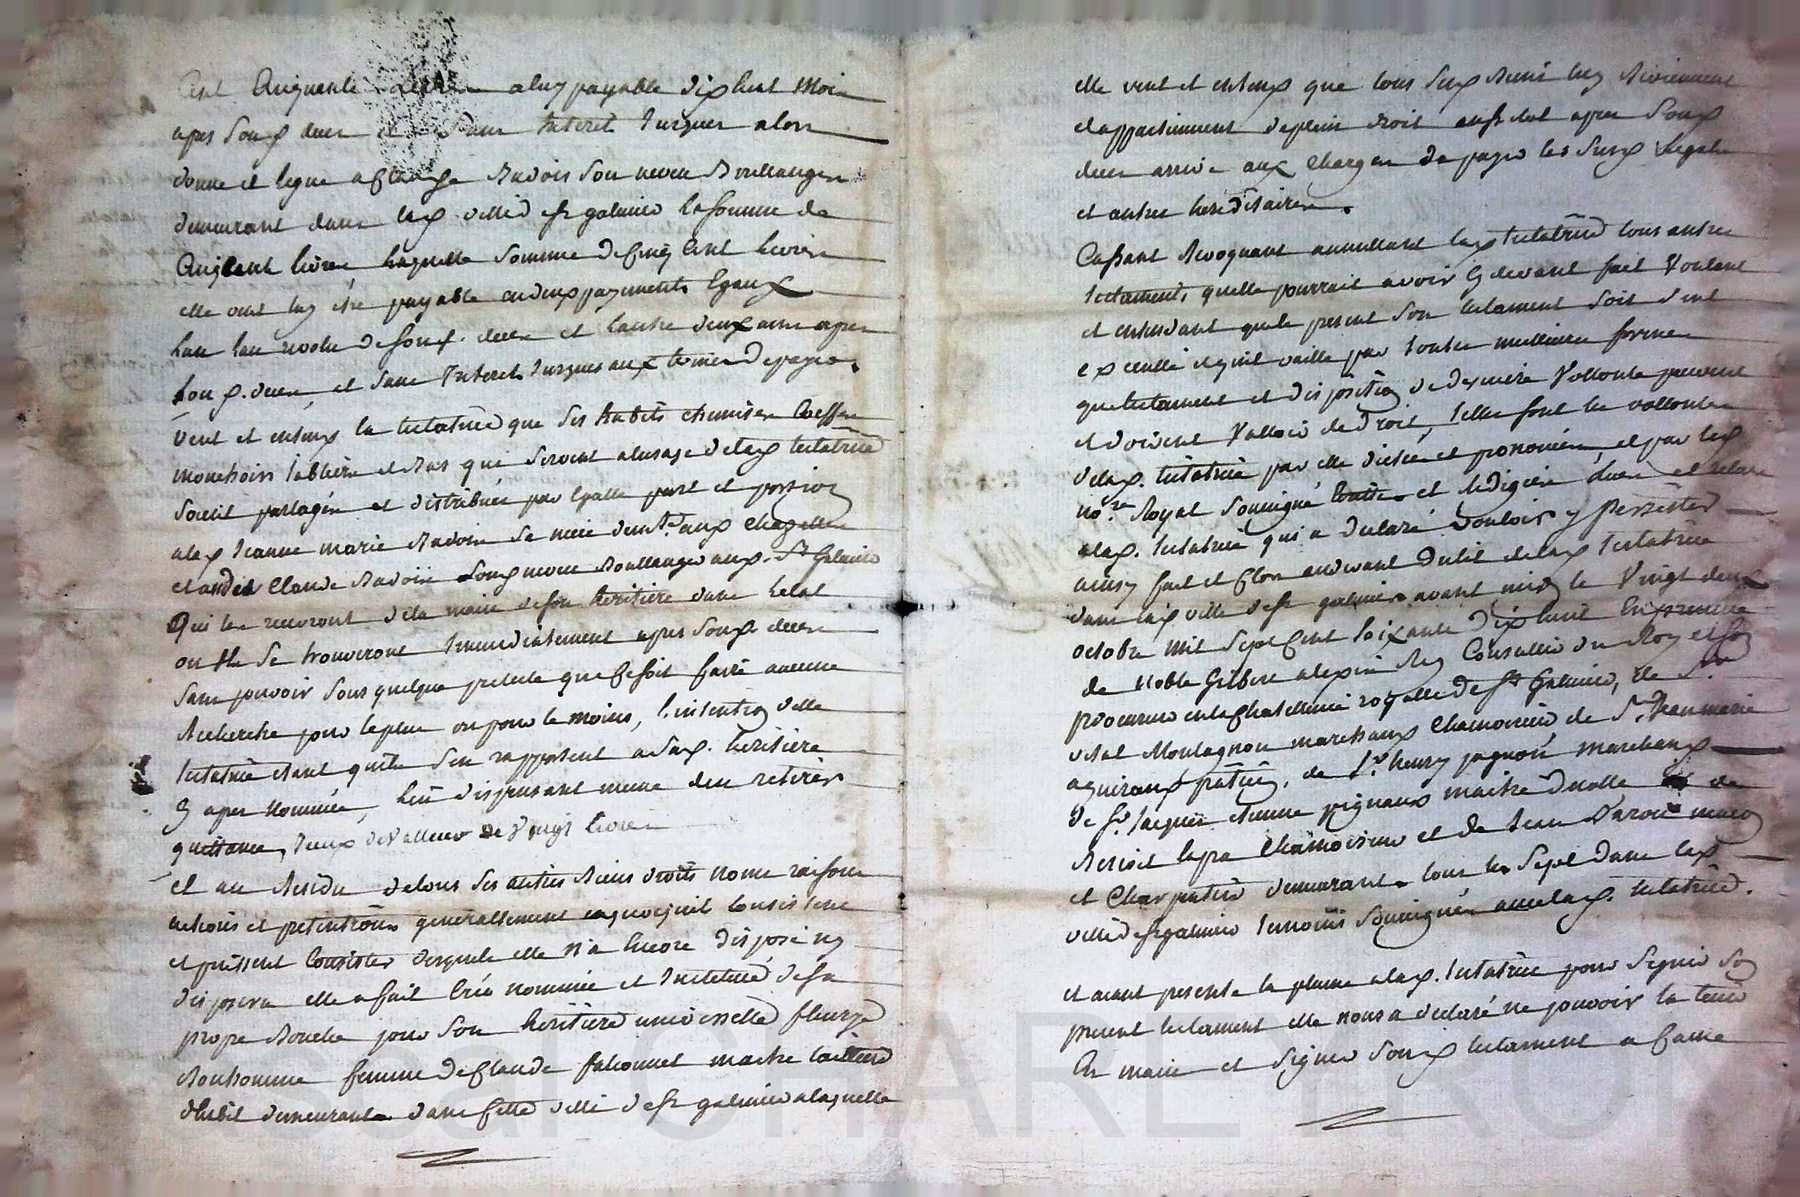 Cent Cinquante livres aluy payable dixhuit Mois
apres sond. deces et sans Interet Jusques alors
donne et legue a Claude Ravoin son neveu Boullanger
demeurant dans lad. ville de st galmier la somme de
Cinq Cent livres laquelle somme de Cinq Cent livres
elle veut luy être payable en deux payements Egaux
Lun lan revolu de son d. deces et lautre deux ans apres
sond. deces et sans Interet Jusques aux termes de payer.
Veut et entend la testatrice que ses habits chemises Coeffes
mouchoirs tabliers et Bas qui servent alusage de lad. testatrice
soient partagés et distribués par Egalle part et portion
alad. Jeanne marie Ravoin sa niece demt. aud. Chazelles
et aud. Claude Ravoin sond. neveu Boullanger aud. St Galmier
Qui les recevront de la main de son heritiere dans letat
ou ils se trouveront Immediatement apres sond. deces
sans pouvoir sous quelque pretexte que Ce soit faire aucune
Recherche pour le plus ou pour le moins, l'intention delle
testatrice etant quils sen rapportent a sad. heritiere
Cy apres Nommée, les dispensant meme den retirer
quittance, Iceux de Valleur de Vingt livres
Et au Residu de tous ses autres Biens droits noms raisons
actions et pretentions generallement en quoy quil Consistent
et puissent Consister desquels elle n'a Encore disposé ny
disposera elle a fait Créé nommée et Institué de sa
propre Bouche pour son heritiere universelle fleurye
Bonhomme femme de Claude falconnet maitre tailleur
dhabit demeurante dans Cette ville de st galmier a laquelle
elle veut et entend que tous sesd. Biens luy Reviennent
et appartiennent de plein droit aussitot apres sond.
deces arrivé aux Charges de payer les susd. legats
et autres hereditaires.
Cassant Revoquant annullant lad. testatrice tous autres
testaments quelle pourrait avoir Cy devant fait Voulant
et entendant que le present son testament soit seul
executté et quil vaille par toutes meilleures formes
que testament et disposition de derniere Vollonté peuvent
et doivent Valloir de droit, telles sont les vollontés
de lad. testatrice par elle dictée et prononcée, et par led.
nore. Royal soussigné Ecrite et Redigée Luë et relue
alad. testatrice qui a declaré vouloir y Persister
ainsy fait et Clos au devant du lit de lad. testatrice
dans lad. ville de st galmier avant midy le Vingt deux
octobre mil Sept Cent soixante dix huit En presence
de Noble Gribere alexis Rey Conseiller du Roy et son
procureur en la Chatellenie royalle de st Galmier, de Sr.
vital Montagnon marchand Chamoiseur de Sr. Jean marie
aguiraud patticier, de Sr. henry pagnon marchand
de Sr. Jacques etienne pignaud maitre decolle de
Benoit lapra Chamoiseur et de Jean Varon maçon
et Charpentier demeurant tous les Sept dans lad.
ville de st galmier temoins soussignés avec lad. testatrice.
et aiant presenté la plume alad. testatrice pour signer son
present testament elle nous a declaré ne pouvoir la tenir
En main et signer sond. testament a Cause